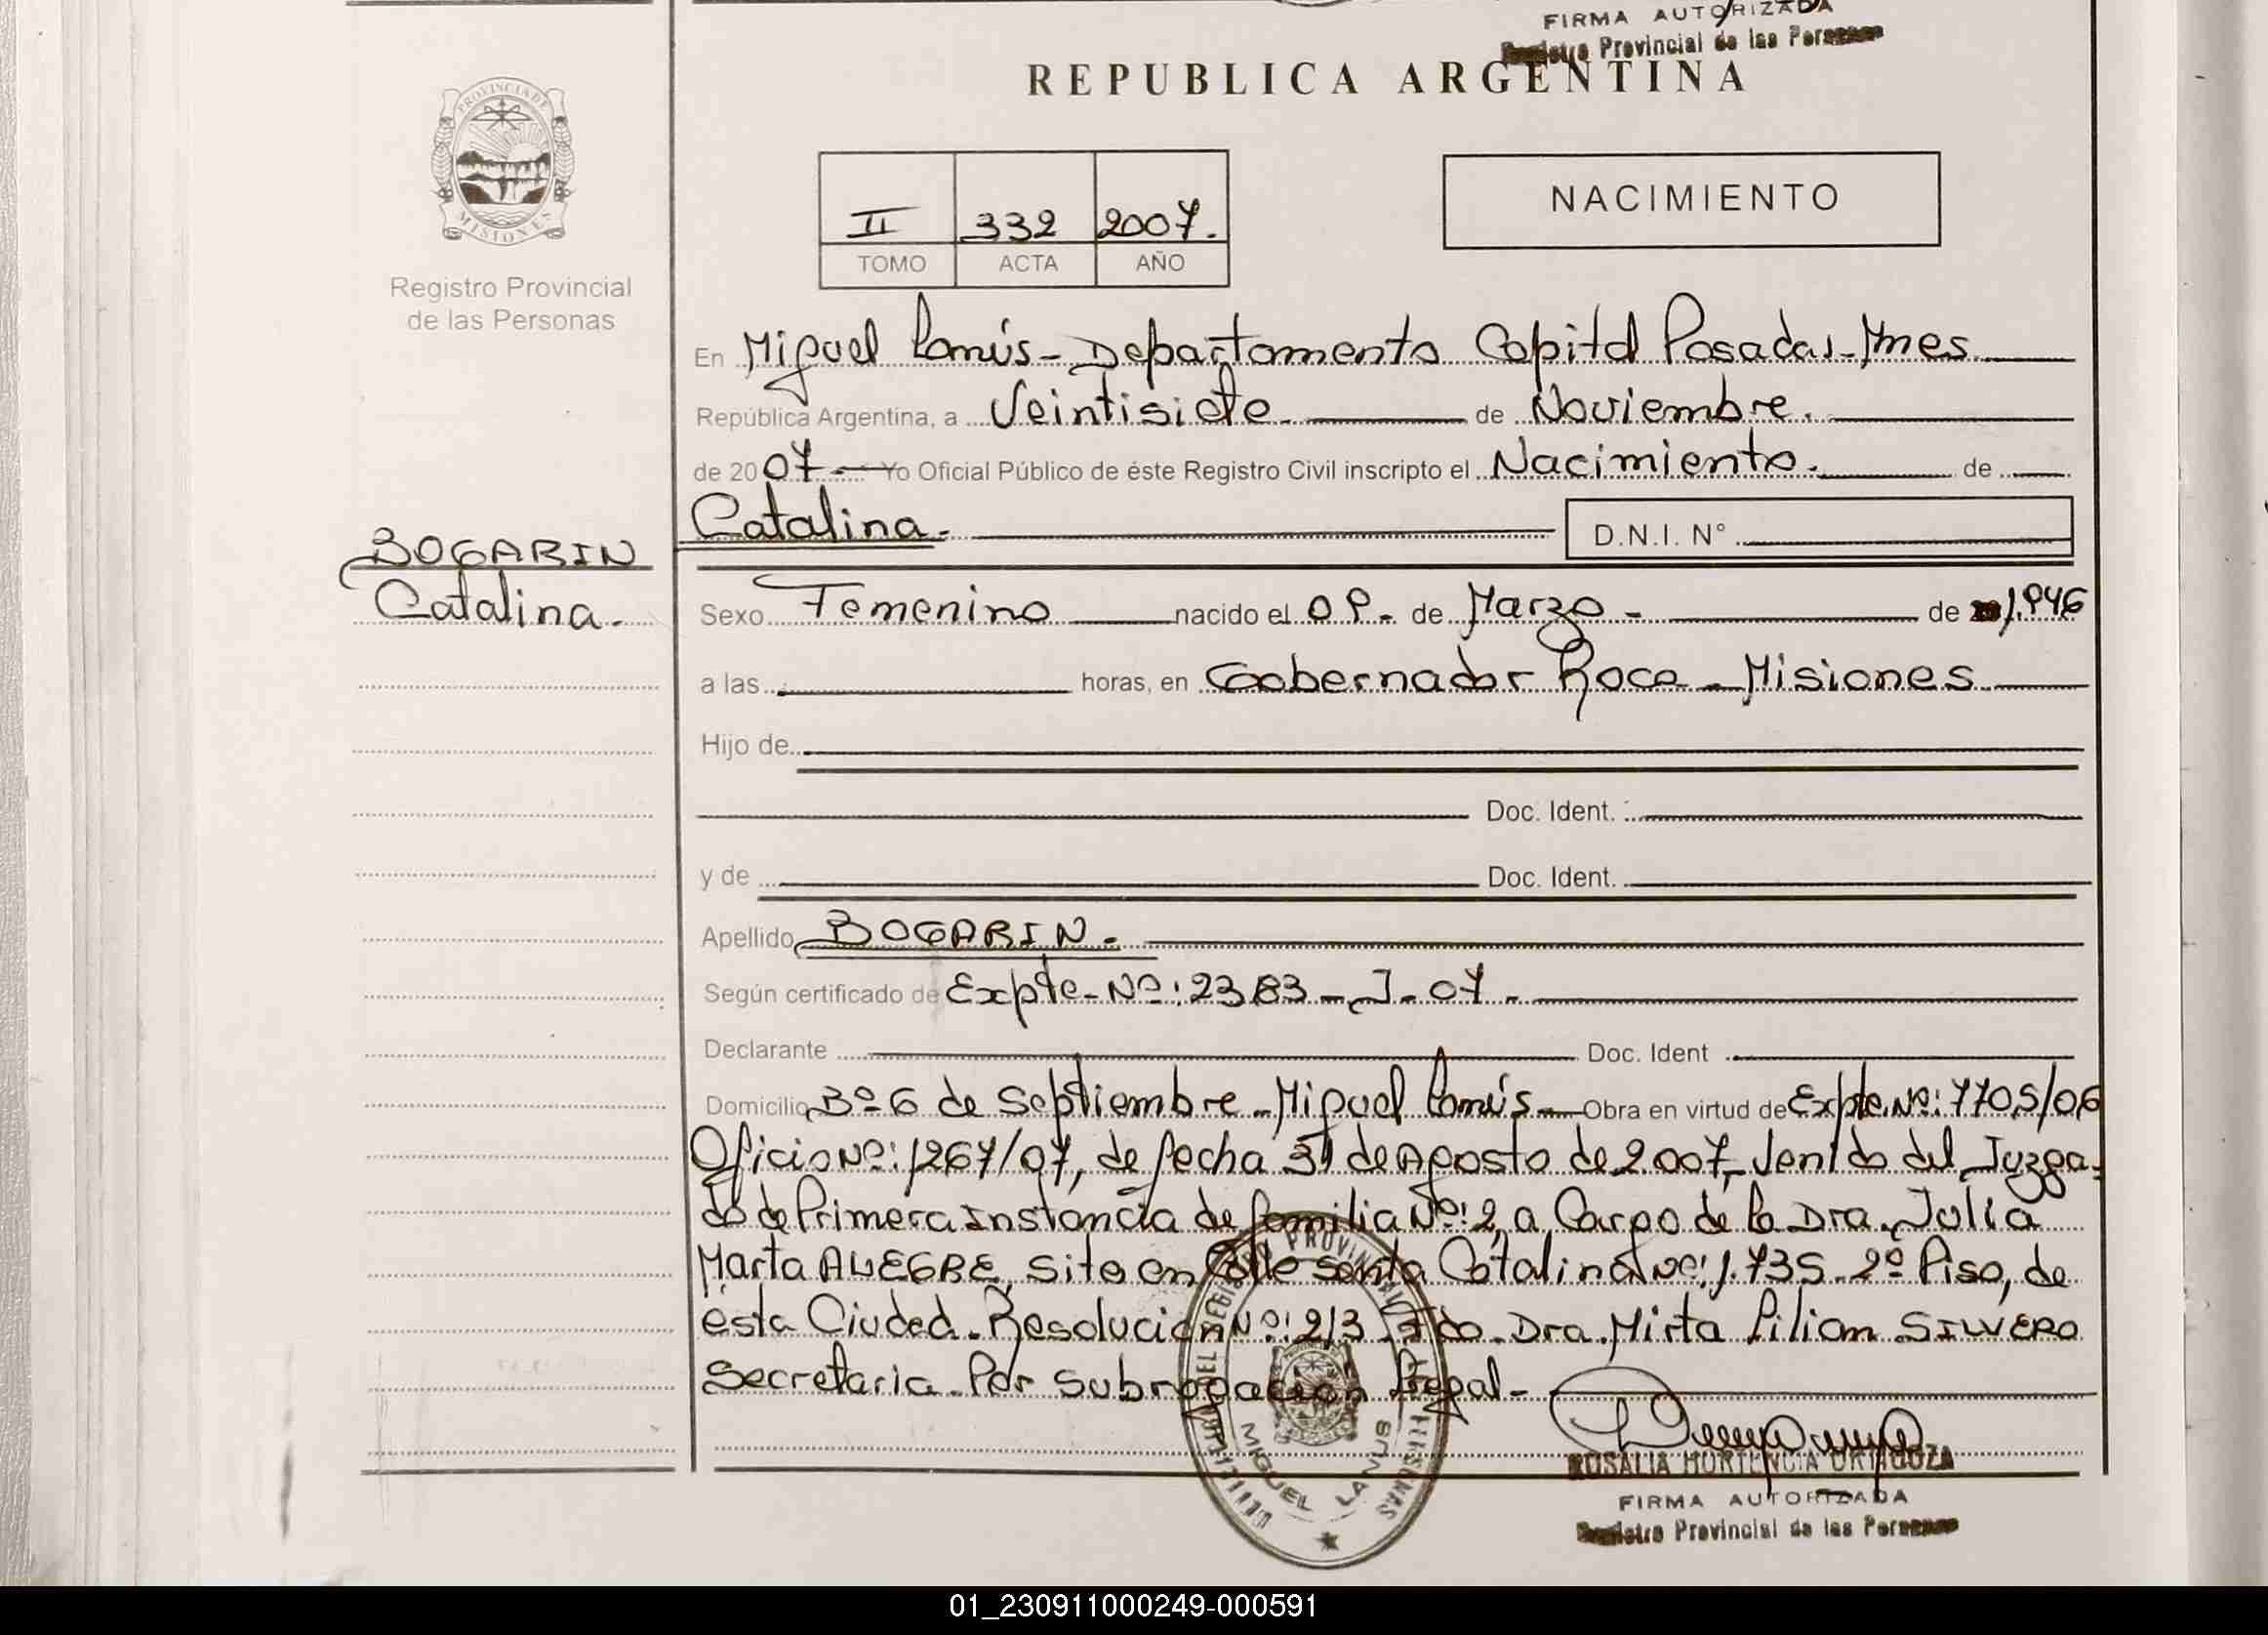 FIRMA AUTORIZADA
Registro Provincial de las Personas
REPUBLICA ARGENTINA
PROVINCIA DE
MISIONES
Registro Provincial
de las Personas
II 332 2007.
TOMO ACTA AÑO
NACIMIENTO
En Miguel Lanús - Departamento Capital Posadas - Mnes
República Argentina, a Veintisiete. de Noviembre.
de 20 07 Yo Oficial Público de éste Registro Civil inscripto el Nacimiento. de
Catalina. D.N.I. N°
BOGARIN
Catalina.
Sexo Femenino nacido el 09. de Marzo - de 1.946
a las horas, en Gobernador Roca - Misiones
Hijo de
Doc. Ident. :
y de Doc. Ident.
Apellido BOGARIN.
Según certificado de Expte. Nº: 2383 - J - 07.
Declarante Doc. Ident
Domicilio Bº 6 de Septiembre - Miguel Lanús - Obra en virtud de Expte. Nº: 7705/06
Oficio Nº: 1267/07, de fecha 31 de Agosto de 2007, Venido del Juzga-
do de Primera Instancia de familia Nº: 2, a Cargo de la Dra. Julia
Marta ALEGRE, Sito en Calle Santa Catalina Nº: 1.735 - 2º Piso, de
esta Ciudad. Resolución Nº: 213 - Fdo. Dra. Mirta Lilian SILVERO
Secretaria - Por Subrogación Legal -
MIGUEL LANUS
ROSALIA HORTENCIA ORTIGOZA
FIRMA AUTORIZADA
Registro Provincial de las Personas
01_230911000249-000591